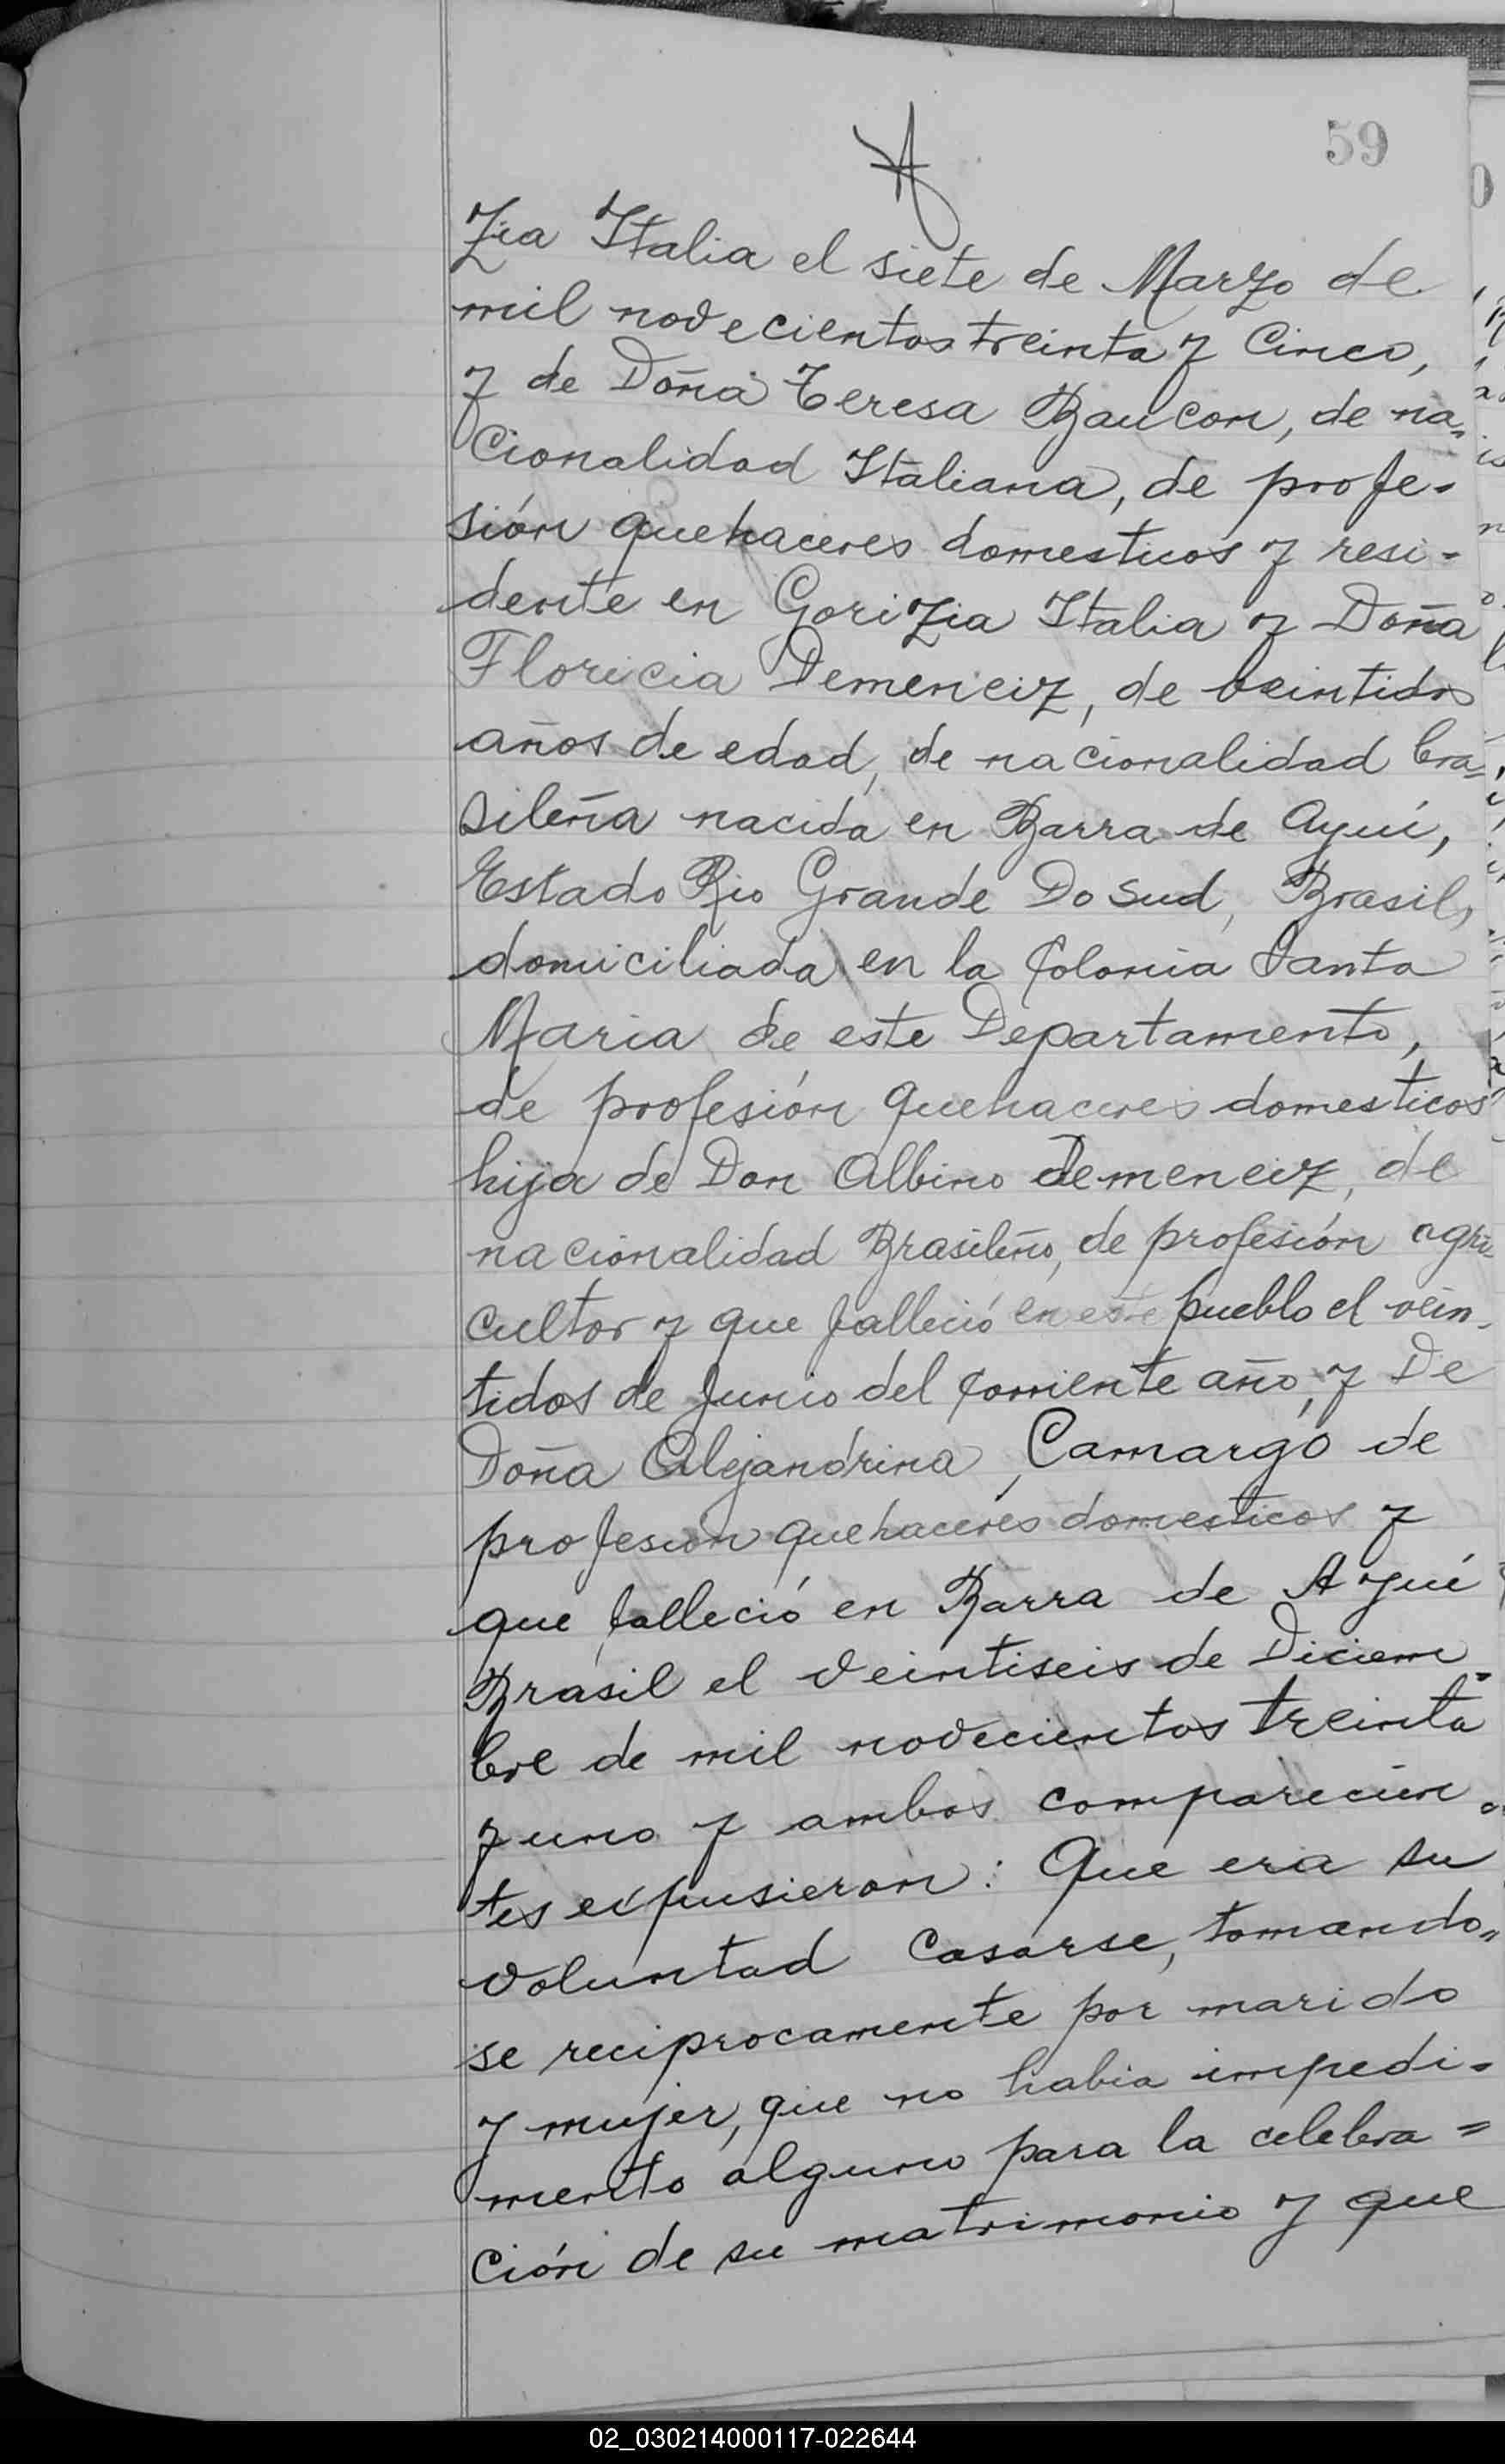 59
zia Italia el siete de Marzo de
mil novecientos treinta y Cinco,
y de Doña Teresa Baucon, de na„
Cionalidad Italiana, de profe-
sión quehaceres domesticos y resi-
dente en Gorizia Italia y Doña
Floricia Demeneiz, de veintidos
años de edad, de nacionalidad bra„
sileña nacida en Barra de Ayuí,
Estado Rio Grande Do Sud, Brasil,
domiciliada en la Colonia Santa
Maria de este Departamento,
de profesión quehaceres domesticos
hija de Don Albino Demeneiz, de
nacionalidad Brasileño, de profesión agri
cultor y que falleció en este pueblo el vein-
tidos de Junio del corriente año, y De
Doña Alejandrina, Camargo de
profesion quehaceres domesticos y
que falleció en Barra de Ayuí
Brasil el Veintiseis de Diciem=
bre de mil novecientos treinta
y uno y ambos comparecien
tes expusieron: Que era su
voluntad Casarse, tomando„
se reciprocamente por marido
y mujer, que no habia impedi-
mento alguno para la celebra=
ción de su matrimonio y que
02_030214000117-022644